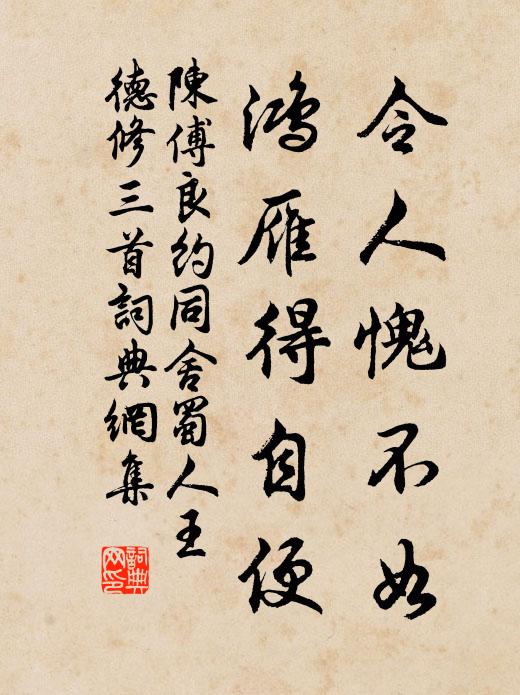 令人愧不如
鴻雁得自便
陳傅良約同舍蜀人王
德修三首詞典網集
詞典网印